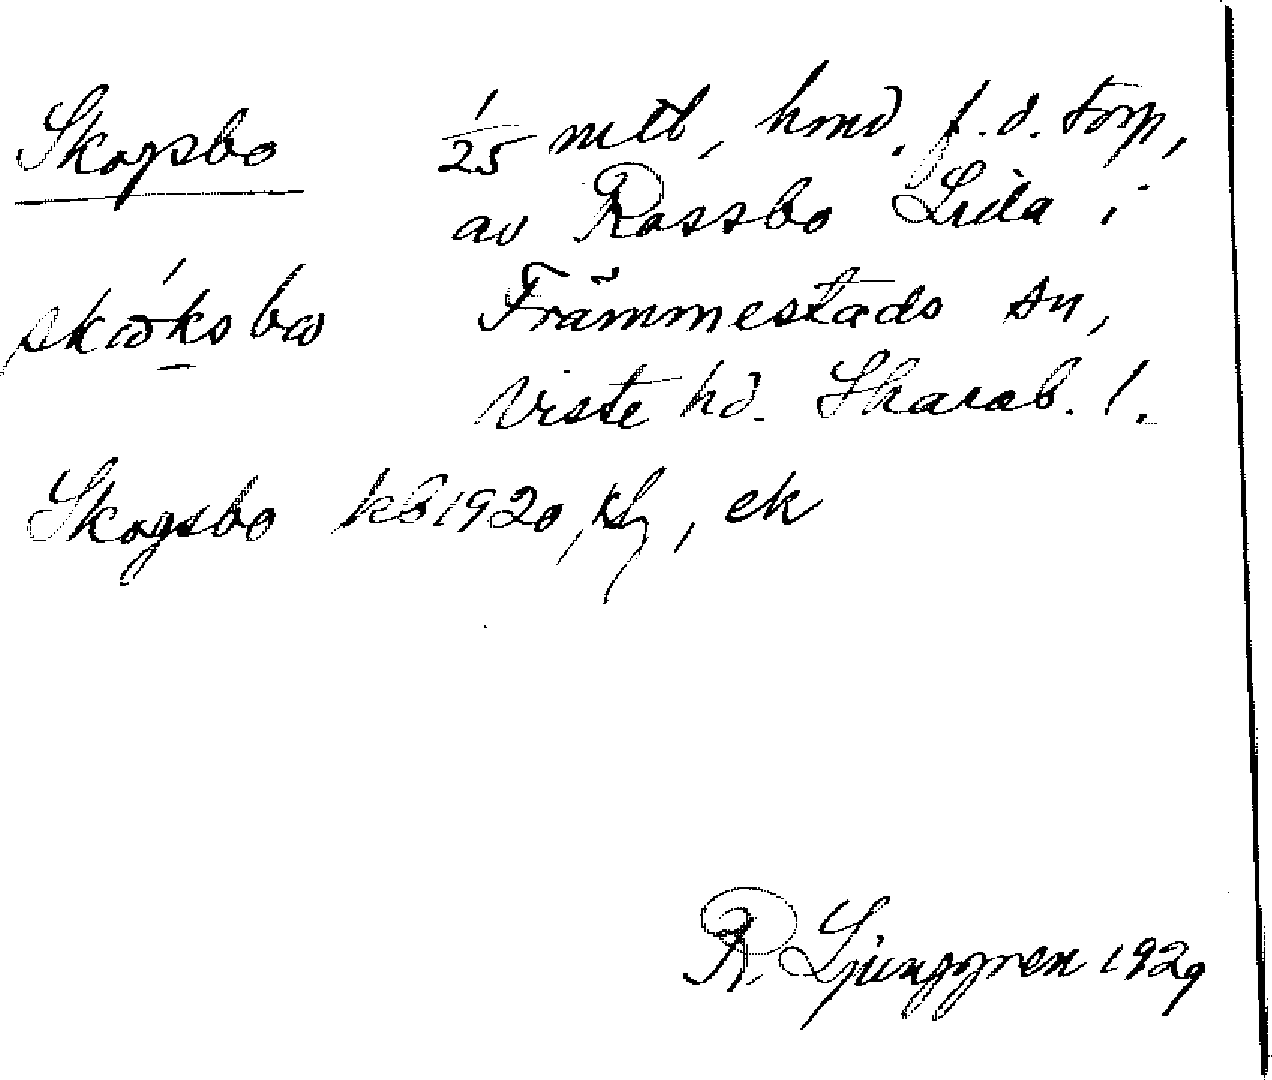 Skogsbo 1/25 mtl, hmd. f.d. torp,
av Rassbo Lida i
skớksbω Främmestads sn,
Viste hd. Skarab. l.
Skogsbo kb 1920, , ek
R. Ljunggren 1929